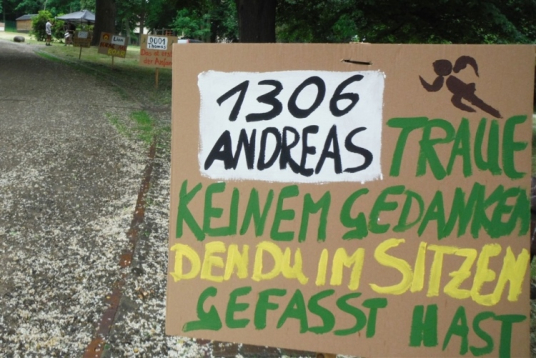 1306
ANDREAS
TRAUE
KEINEM GEDANKEN
DEN DU IM SITZEN
GEFASST HAST
9001